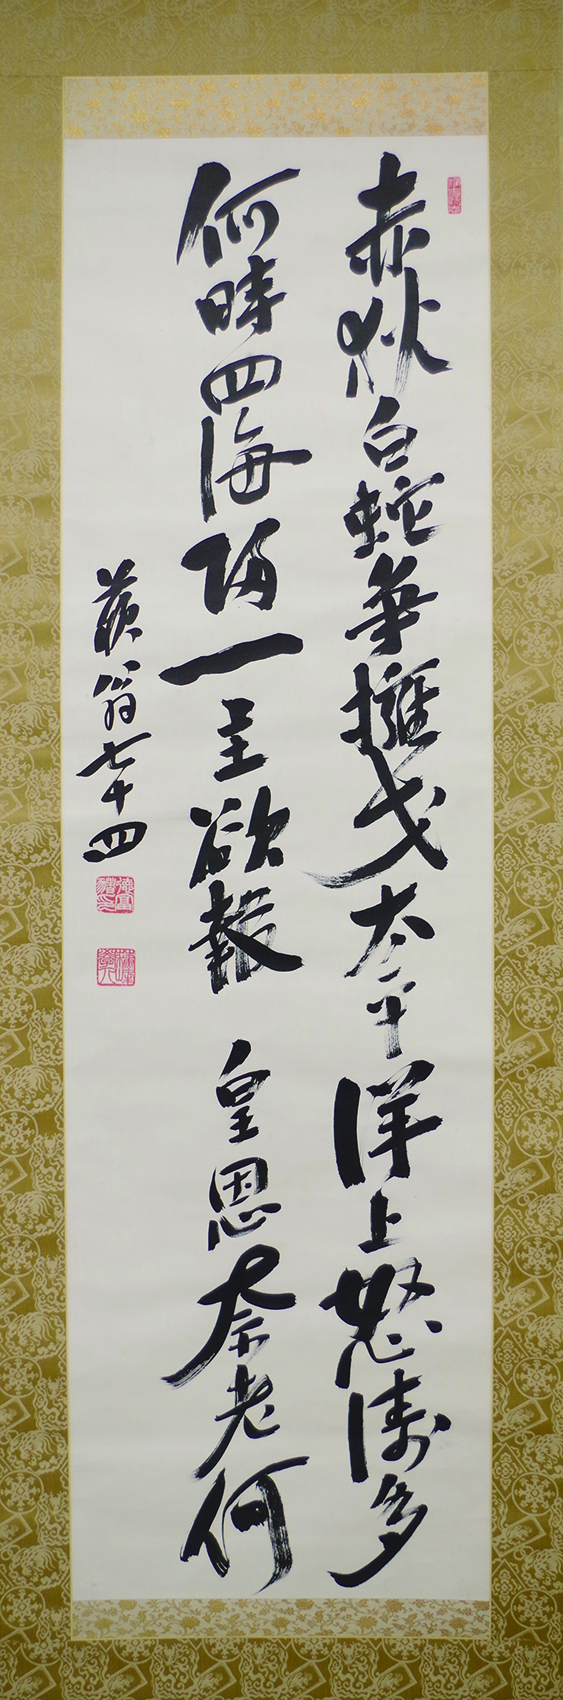 赤狄白蛇争擁戈太平洋上怒濤多
何時四海帰一主欲報　皇恩奈老何
蘇翁七十四